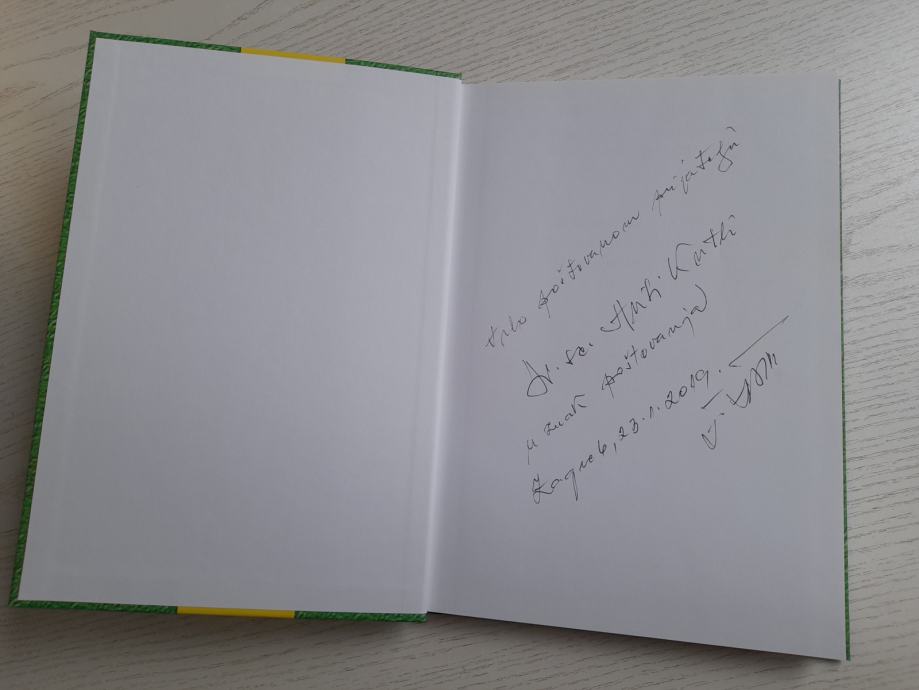 vrlo poštovanom prijatelju
dr. sc. Anti Kutli
u znak poštovanja
Zagreb, 23.1.2019.